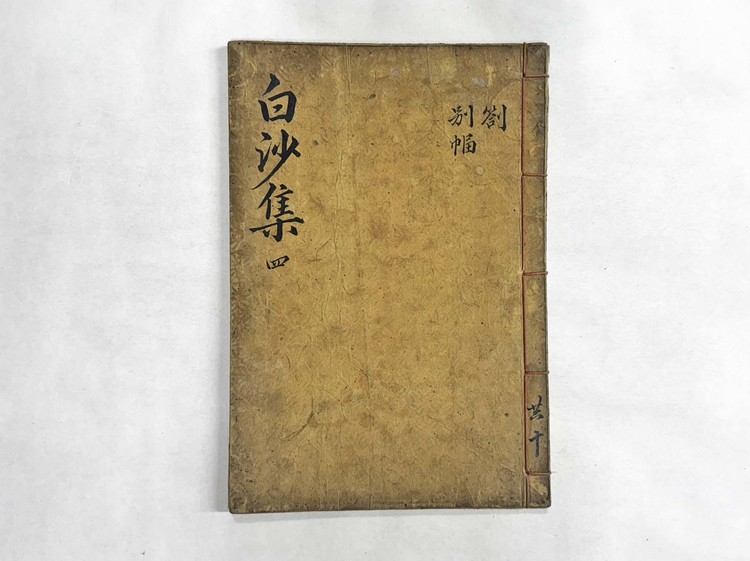 白沙集 四
箚
別幅
共十